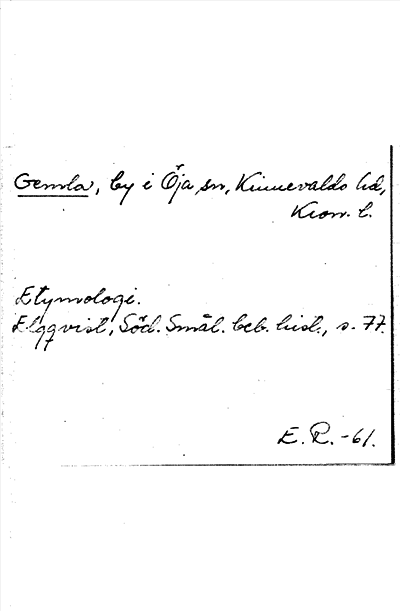 Gemla, by i Öja sn, Kinnevalds hd,
Kron. l.
Etymologi.
Elqqvist, Söd. Smål. beb. hist., s. 77.
E. R. -61.